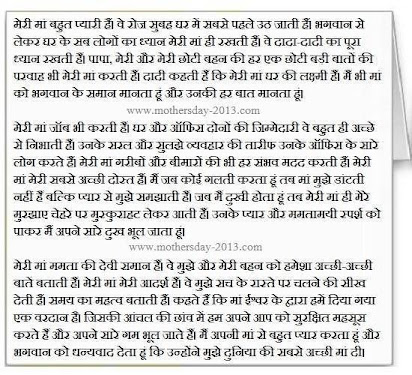 मेरी मां बहुत प्यारी हैं। वे रोज सुबह घर मे सबसे पहले उठ जाती हैं। भगवान से
लेकर घर के सब लोगों का ध्यान मेरी मां ही रखती हैं। वे दादा-दादी का पूरा
ध्यान रखती हैं। पापा, मेरी और मेरी छोटी बहन की हर एक छोटी बड़ी बातों की
परवाह भी मेरी मां करती हैं। दादी कहती हैं कि मेरी मां घर की लक्ष्मी हैं। मैं भी मां
को भगवान के समान मानता हूं और उनकी हर बात मानता हूं।
www.mothersday-2013.com
मेरी मां जॉब भी करती हैं। घर और ऑफिस दोनों की जिम्मेदारी वे बहुत ही अच्छे
से निभाती हैं। उनके सरल और सुलझे व्यवहार की तारीफ उनके ऑफिस के सारे
लोग करते हैं। मेरी मां गरीबों और बीमारों की भी हर संभव मदद करती हैं। मेरी
मां मेरी सबसे अच्छी दोस्त हैं। मैं जब कोई गलती करता हूं तब मां मुझे डांटती
नहीं हैं बल्कि प्यार से मुझे समझाती हैं। जब मैं दुखी होता हूं तब मेरी मां ही मेरे
मुरझाए चेहरे पर मुस्कुराहट लेकर आती हैं। उनके प्यार और ममतामयी स्पर्श को
पाकर मैं अपने सारे दुख भूल जाता हूं।
www.mothersday-2013.com
मेरी मां ममता की देवी समान हैं। वे मुझे और मेरी बहन को हमेशा अच्छी-अच्छी
बाते बताती हैं। मेरी मां मेरी आदर्श हैं। वे मुझे सच के रास्ते पर चलने की सीख
देती हैं। समय का महत्व बताती हैं। कहते हैं कि मां ईश्वर के द्वारा हमें दिया गया
एक वरदान है। जिसकी आंचल की छांव में हम अपने आप को सुरक्षित महसूस
करते हैं और अपने सारे गम भूल जाते हैं। मैं अपनी मां से बहुत प्यार करता हूं और
भगवान को धन्यवाद देता हूं कि उन्होंने मुझे दुनिया की सबसे अच्छी मां दी।